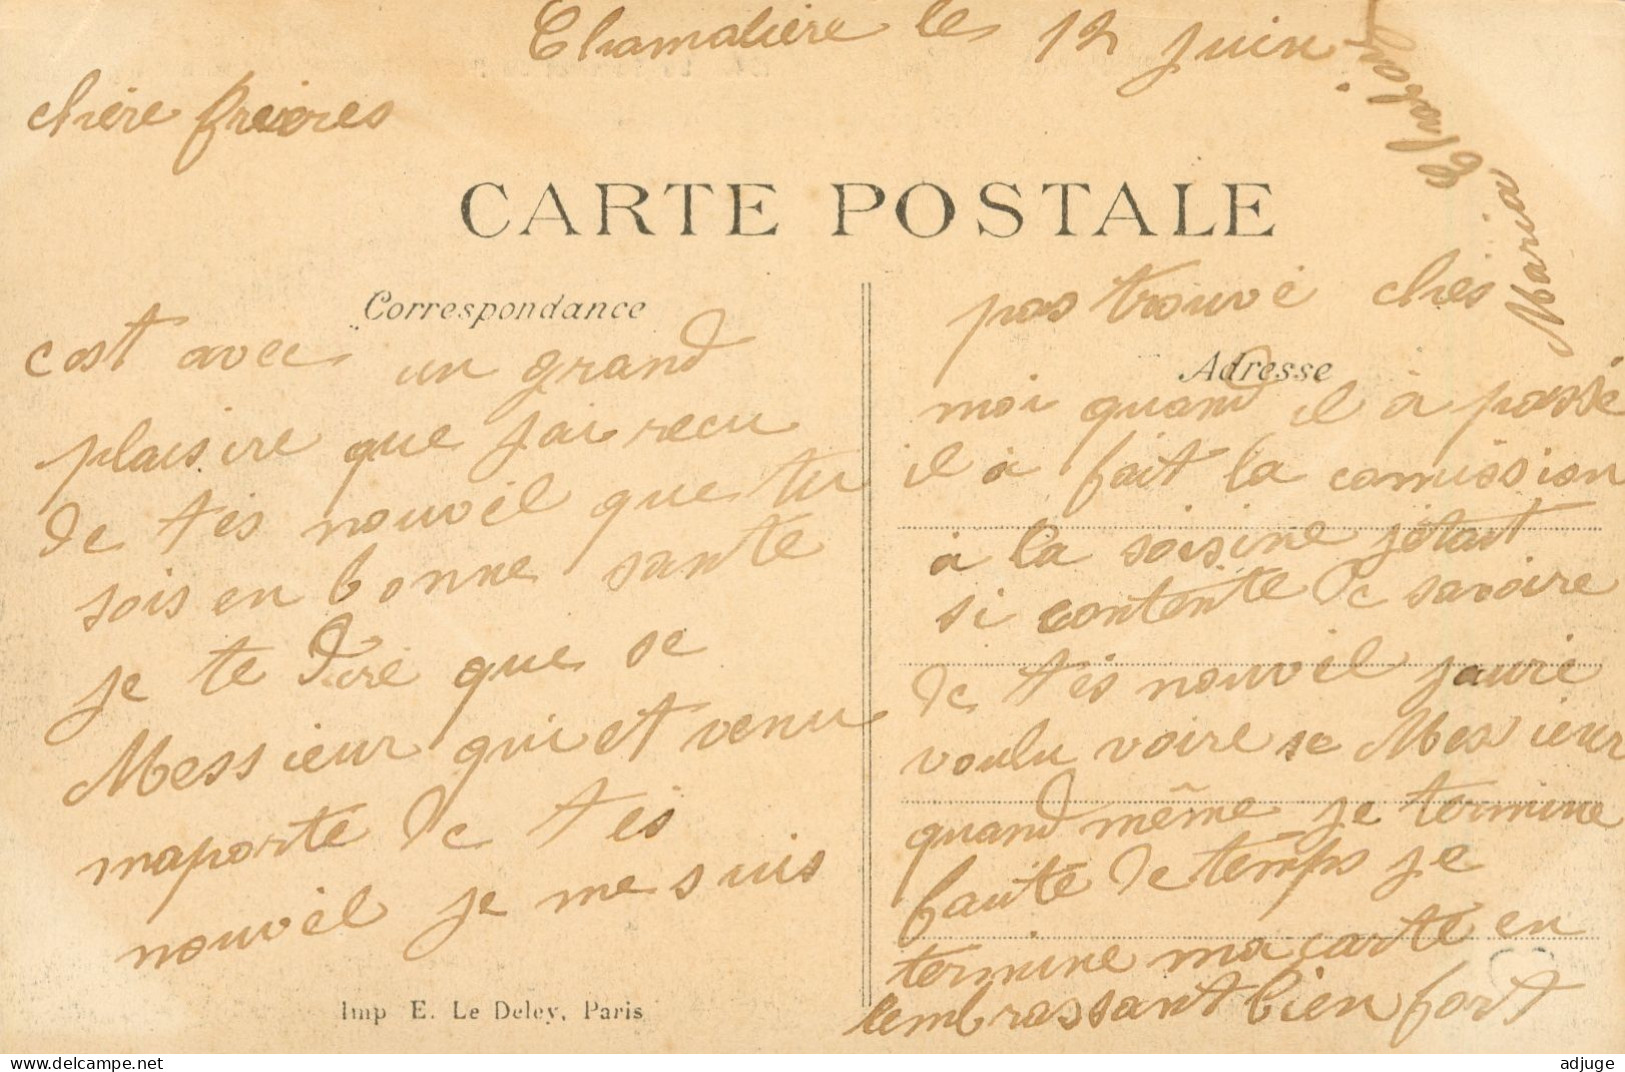 Chamalière le 12 juin
chère frères
CARTE POSTALE
Correspondance
cest avec un grand
plaisire que jai recu
de tes nouvèl que tu
sois en bonne sante
je te diré que se
Messieur qui et venu
maporté de tes
nouvèl je me suis
Imp E. Le Deley, Paris
pas trouvé chès
Adresse
moi quand il à passé
il à fait la comission
à la soisine jétait
si contente de savoire
de tes nouvèl jauré
voulu voire se Messieur
quand même je termine
faute de temps je
termine ma carte en
tembrassant bien fort
Maria
adjuge